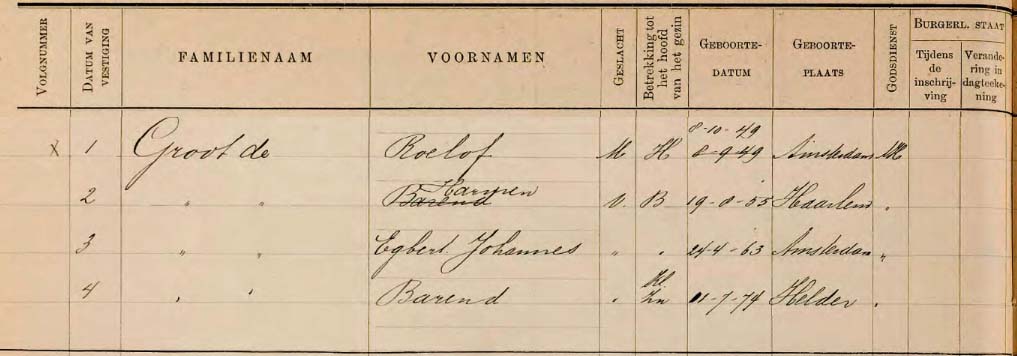 VOLGNUMMER DATUM VAN VESTIGING FAMILIENAAM VOORNAMEN GESLACHT Betrekking tot het hoofd van het gezin GEBOORTE-DATUM GEBOORTE-PLAATS GODSDIENST BURGERL. STAAT
Tijdens de inschrij-ving Verande-ring in dagteeke-ning
8-10-49
X 1 Groot de Roelof M H 8-9-49 Amsterdam NH
Harmen
2 " " Barend V. B 19-8-55 Haarlem "
3 " " Egbert Johannes " " 24-4-63 Amsterdam "
4 " " Barend " Zn 11-7-74 Helder "